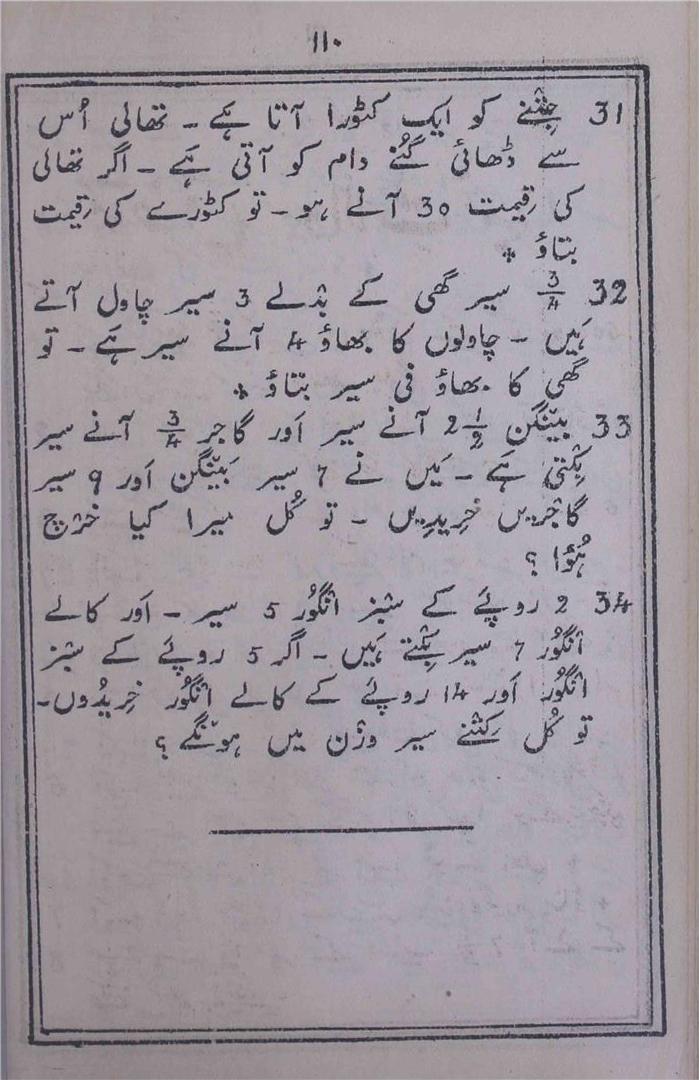 ۱۱۰
31 جتنے کو ایک کٹورا آتا ہے ۔ تھالی اُس
سے ڈھائی گُنے دام کو آتی ہَے ۔ اگر تھالی
کی قیمت 30 آنے ہو ۔ تو کٹورے کی قیمت
بتاؤ +
32 3/4 سیر گھی کے بدلے 3 سیر چاول آتے
ہَیں ۔ چاولوں کا بھاؤ 4 آنے سیر ہَے ۔ تو
گھی کا بھاؤ فی سیر بتاؤ +
33 بَینگن 2 1/2 آنے سیر اَور گاجر 3/4 آنے سیر
بِکتی ہَے ۔ مَیں نے 7 سیر بَینگن اَور 9 سیر
گاجریں خرِیدِیں ۔ تو کُل میرا کیا خرچ
ہُؤا ؟
34 2 روپئے کے سبز انگُور 5 سیر ۔ اَور کالے
انگُور 7 سیر بِکتے ہَیں ۔ اگر 5 روپئے کے سبز
انگُور اَور 14 روپئے کے کالے انگُور خرِیدُوں ۔
تو کُل کِتنے سیر وزن میں ہونگے ؟